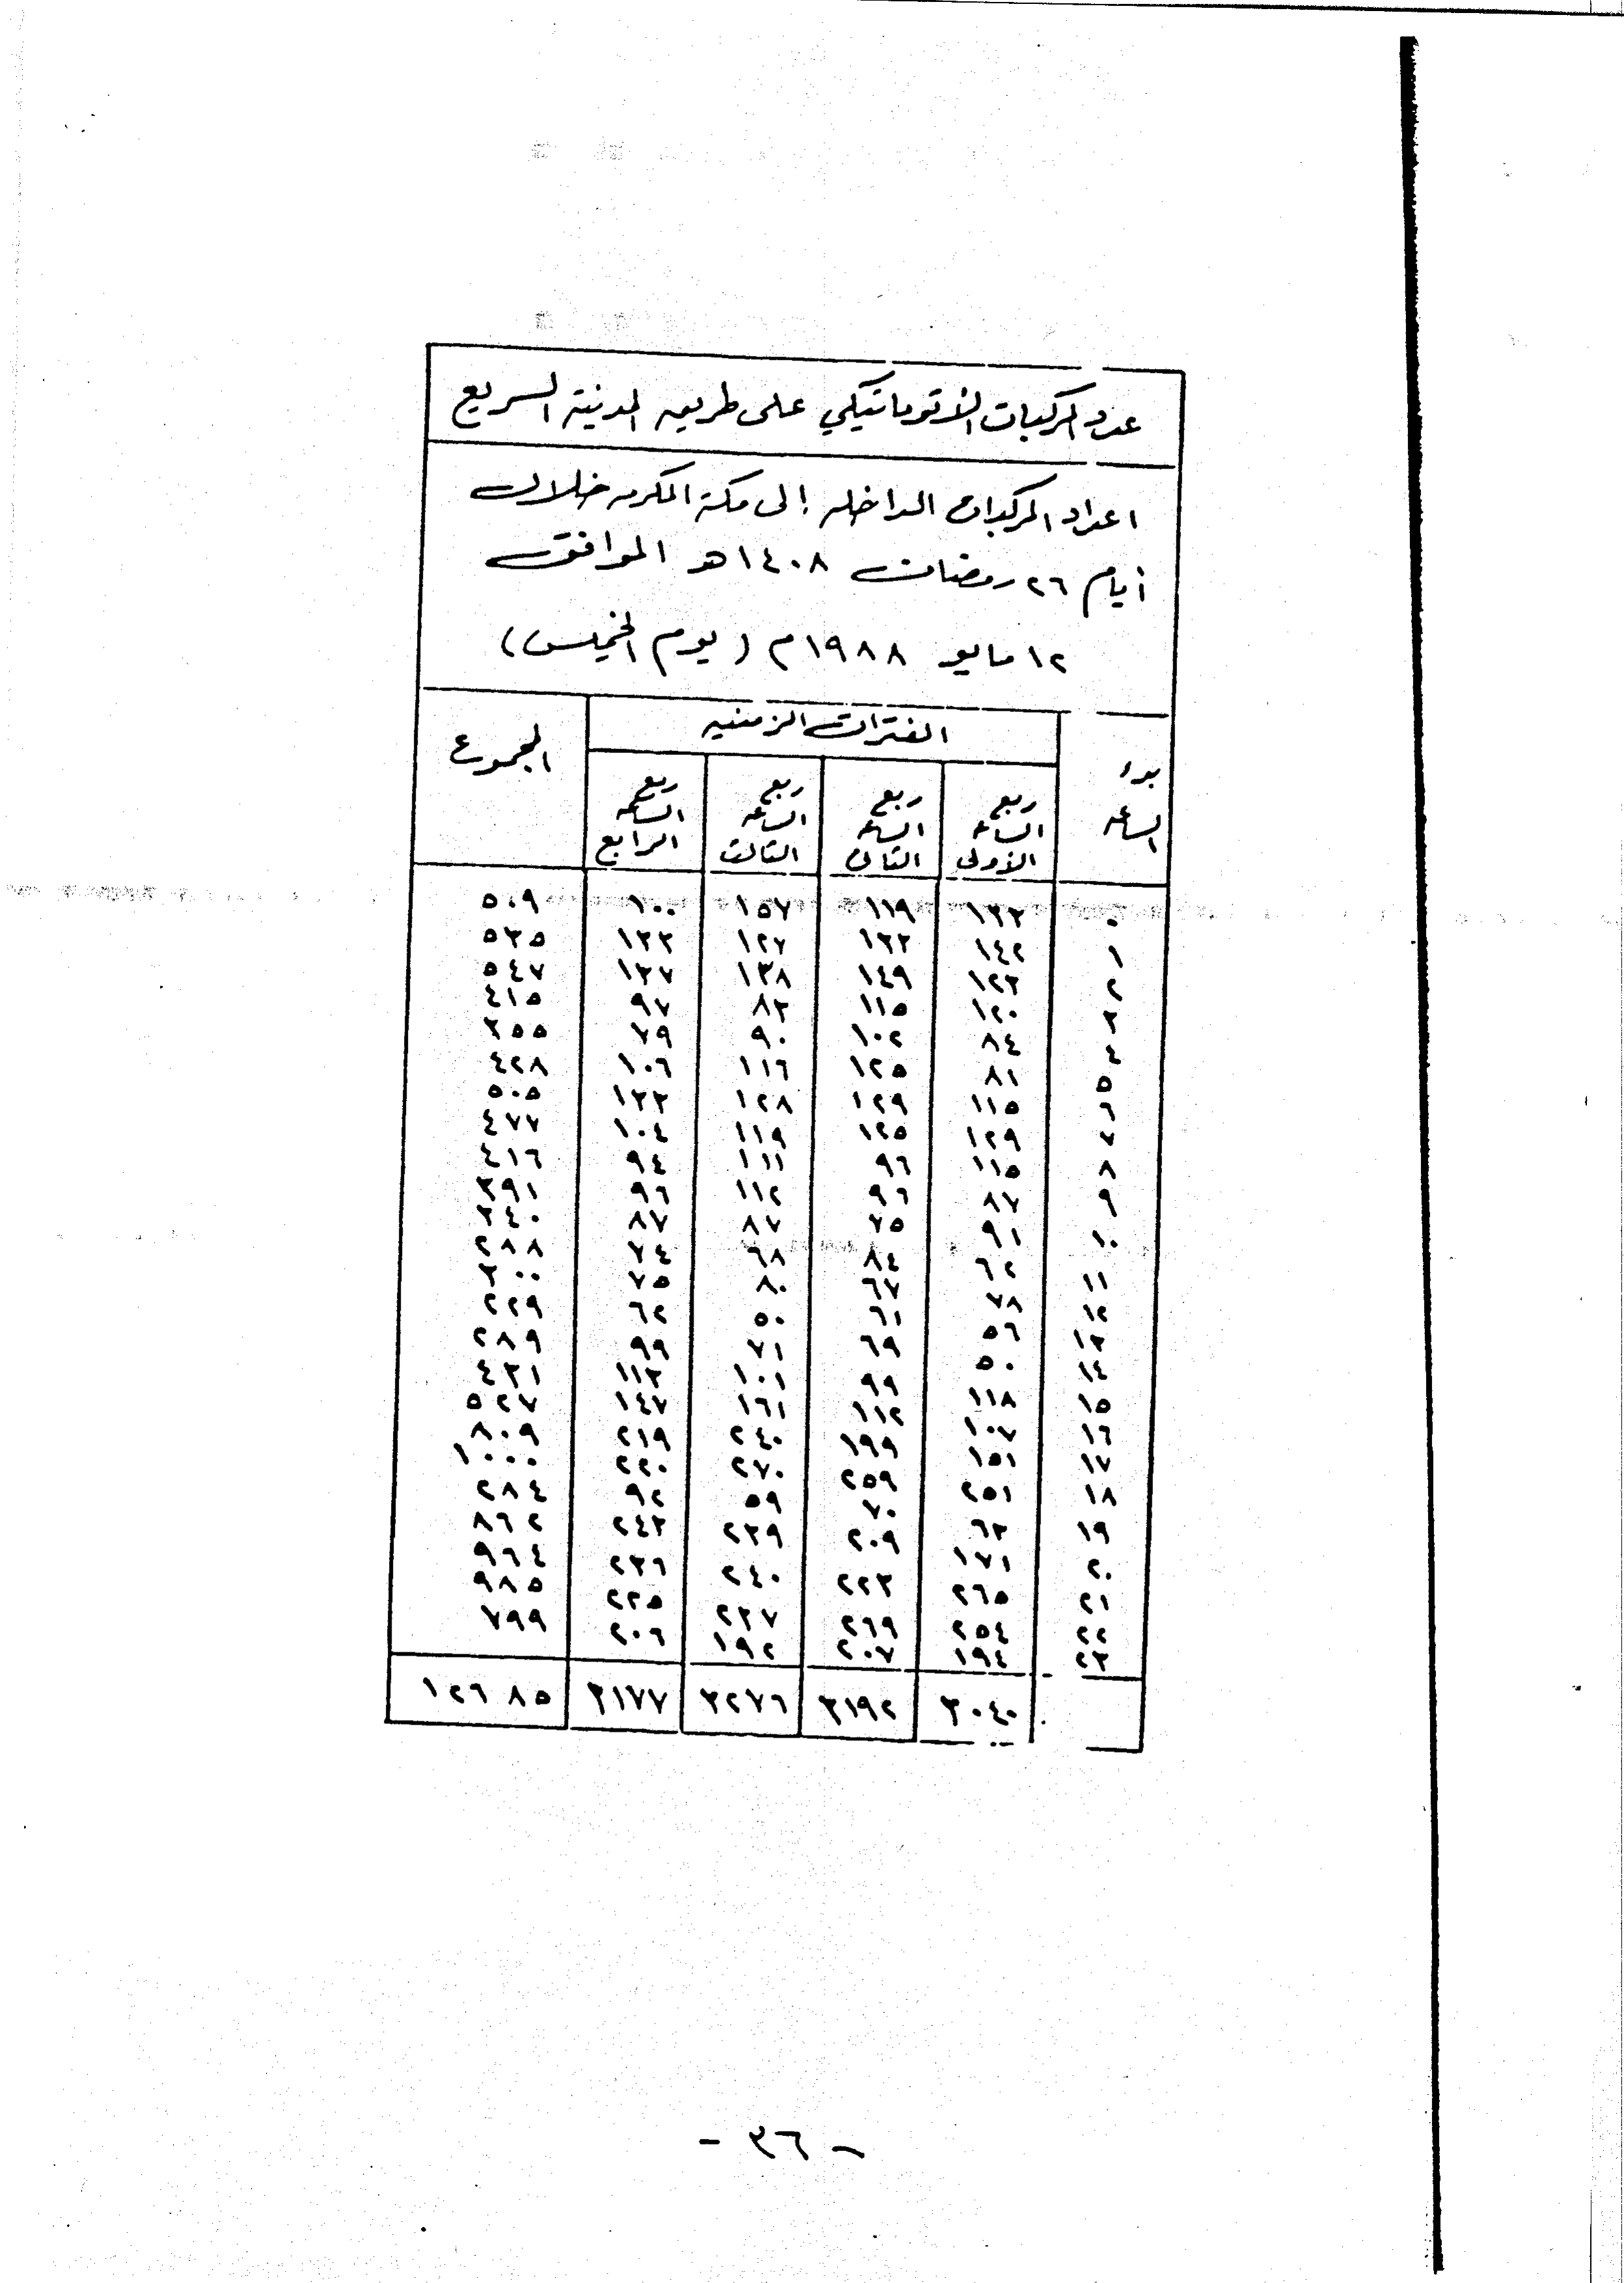 عدد المركبات الأتوماتيكي على طريق المدينة السريع
اعداد المركبات الداخله إلى مكة المكرمه خلال
أيام ٢٦ رمضان ١٤٠٨هـ الموافق
١٢ مايو ١٩٨٨م (يوم الخميس)
بدء الساعه الفترات الزمنيه المجموع
ربع الساعه الأولى ربع الساعه الثاني ربع الساعه الثالث ربع الساعه الرابع
٠ ١٣٣ ١١٩ ١٥٧ ١٠٠ ٥٠٩
١ ١٤٢ ١٣٣ ١٢٧ ١٣٣ ٥٣٥
٢ ١٢٣ ١٤٩ ١٣٨ ١٣٧ ٥٤٧
٣ ١٢٠ ١١٥ ٨٣ ٩٧ ٤١٥
٤ ٨٤ ١٠٢ ٩٠ ٧٩ ٣٥٥
٥ ٨١ ١٢٥ ١١٦ ١٠٦ ٤٢٨
٦ ١١٥ ١٢٩ ١٢٨ ١٣٣ ٥٠٥
٧ ١٢٩ ١٢٥ ١١٩ ١٠٤ ٤٧٧
٨ ١١٥ ٩٦ ١١١ ٩٤ ٤١٦
٩ ٨٧ ٩٦ ١١٢ ٩٦ ٣٩١
١٠ ٩١ ٧٥ ٨٧ ٨٧ ٣٤٠
١١ ٦٢ ٨٤ ٦٨ ٧٤ ٢٨٨
١٢ ٧٨ ٦٧ ٨٠ ٧٥ ٣٠٠
١٣ ٥٦ ٦١ ٥٠ ٦٢ ٢٢٩
١٤ ٥٠ ٦٩ ٧١ ٩٩ ٢٨٩
١٥ ١١٨ ٩٩ ١٠١ ١١٣ ٤٣١
١٦ ١٠٧ ١١٢ ١٦١ ١٤٧ ٥٢٧
١٧ ١٥١ ١٩٩ ٢٤٠ ٢١٩ ٨٠٩
١٨ ٢٥١ ٢٥٩ ٢٧٠ ٢٢٠ ١٠٠٠
١٩ ٦٣ ٧٠ ٥٩ ٩٢ ٢٨٤
٢٠ ١٧١ ٢٠٩ ٢٣٩ ٢٤٣ ٨٦٢
٢١ ٢٦٥ ٢٢٣ ٢٤٠ ٢٣٦ ٩٦٤
٢٢ ٢٥٤ ٢٦٩ ٢٣٧ ٢٢٥ ٩٨٥
٢٣ ١٩٤ ٢٠٧ ١٩٢ ٢٠٦ ٧٩٩
٣٠٤٠ ٣١٩٢ ٣٢٧٦ ٣١٧٧ ١٢٦٨٥
- ٣٦ -